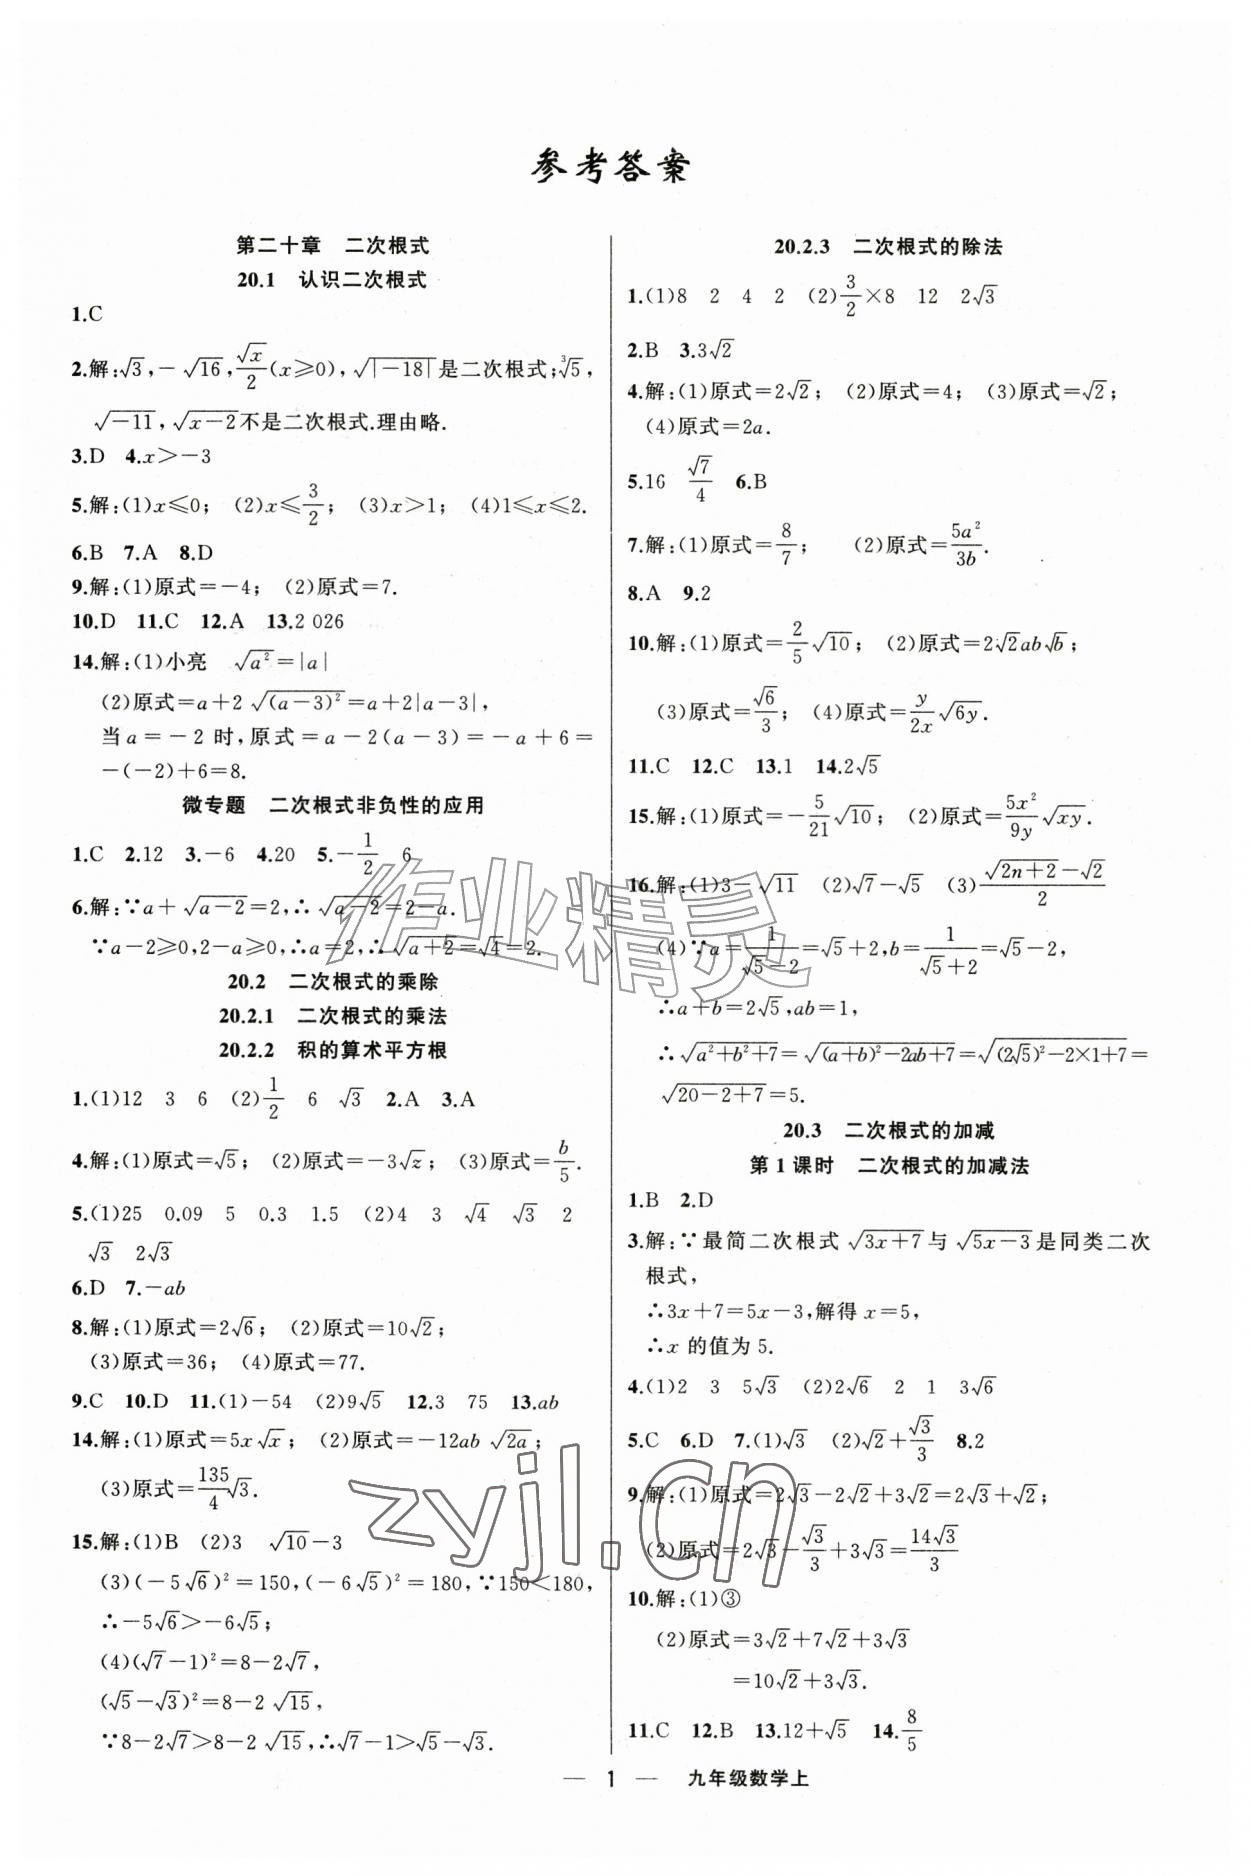 参考答案
第二十章 二次根式
20.1 认识二次根式
1.C
2.解:√3,-√16,√x/2(x≥0),√|-18|是二次根式;∛5,
√-11,√x-2不是二次根式.理由略.
3.D 4.x>-3
5.解:(1)x≤0; (2)x≤3/2; (3)x>1; (4)1≤x≤2.
6.B 7.A 8.D
9.解:(1)原式=-4; (2)原式=7.
10.D 11.C 12.A 13.2 026
14.解:(1)小亮 √a²=|a|
(2)原式=a+2√(a-3)²=a+2|a-3|,
当a=-2时,原式=a-2(a-3)=-a+6=
-(-2)+6=8.
微专题 二次根式非负性的应用
1.C 2.12 3.-6 4.20 5.-1/2 6
6.解:∵a+√a-2=2,∴√a-2=2-a.
∵a-2≥0,2-a≥0,∴a=2,∴√a+2=√4=2.
20.2 二次根式的乘除
20.2.1 二次根式的乘法
20.2.2 积的算术平方根
1.(1)12 3 6 (2)1/2 6 √3 2.A 3.A
4.解:(1)原式=√5; (2)原式=-3√z; (3)原式=b/5.
5.(1)25 0.09 5 0.3 1.5 (2)4 3 √4 √3 2
√3 2√3
6.D 7.-ab
8.解:(1)原式=2√6; (2)原式=10√2;
(3)原式=36; (4)原式=77.
9.C 10.D 11.(1)-54 (2)9√5 12.3 75 13.ab
14.解:(1)原式=5x√x; (2)原式=-12ab√2a;
(3)原式=135/4√3.
15.解:(1)B (2)3 √10-3
(3)(-5√6)²=150,(-6√5)²=180,∵150<180,
∴-5√6>-6√5;
(4)(√7-1)²=8-2√7,
(√5-√3)²=8-2√15,
∵8-2√7>8-2√15,∴√7-1>√5-√3.
20.2.3 二次根式的除法
1.(1)8 2 4 2 (2)3/2×8 12 2√3
2.B 3.3√2
4.解:(1)原式=2√2; (2)原式=4; (3)原式=√2;
(4)原式=2a.
5.16 √7/4 6.B
7.解:(1)原式=8/7; (2)原式=5a²/3b.
8.A 9.2
10.解:(1)原式=2/5√10; (2)原式=2√2ab√b;
(3)原式=√6/3; (4)原式=y/2x√6y.
11.C 12.C 13.1 14.2√5
15.解:(1)原式=-5/21√10; (2)原式=5x²/9y√xy.
16.解:(1)3-√11 (2)√7-√5 (3)(√2n+2-√2)/2
(4)∵a=1/(√5-2)=√5+2,b=1/(√5+2)=√5-2,
∴a+b=2√5,ab=1,
∴√a²+b²+7=√(a+b)²-2ab+7=√(2√5)²-2×1+7=
√20-2+7=5.
20.3 二次根式的加减
第1课时 二次根式的加减法
1.B 2.D
3.解:∵最简二次根式√3x+7与√5x-3是同类二次
根式,
∴3x+7=5x-3,解得x=5,
∴x的值为5.
4.(1)2 3 5√3 (2)2√6 2 1 3√6
5.C 6.D 7.(1)√3 (2)√2+√3/3 8.2
9.解:(1)原式=2√3-2√2+3√2=2√3+√2;
(2)原式=2√3-√3/3+3√3=14√3/3
10.解:(1)③
(2)原式=3√2+7√2+3√3
=10√2+3√3.
11.C 12.B 13.12+√5 14.8/5
— 1 — 九年级数学上
作业精灵
zyjl.cn